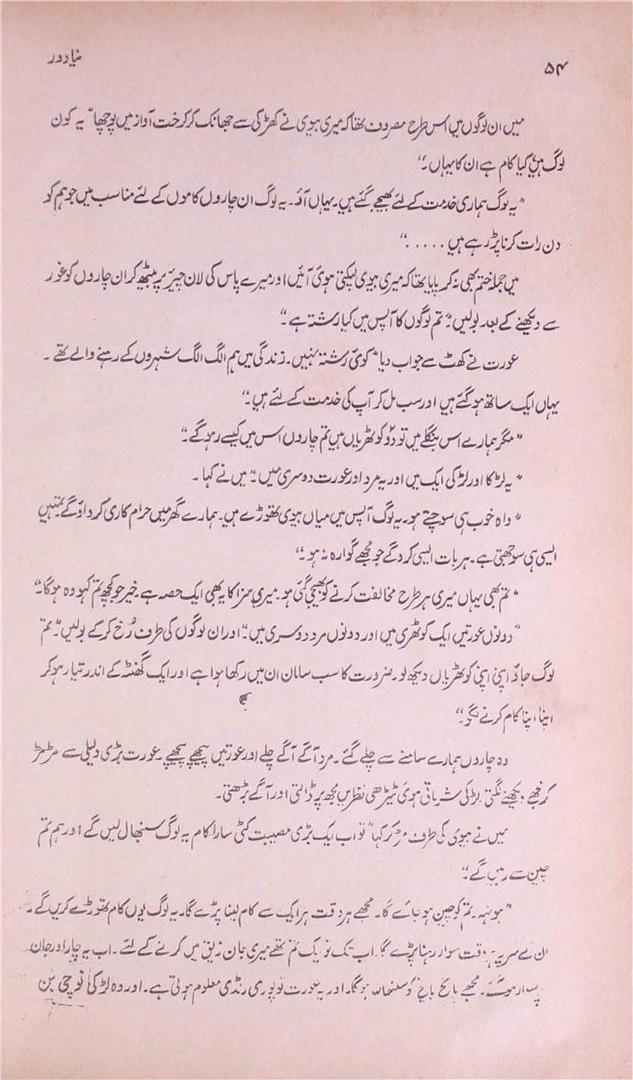 ۵۴
نیا دور
میں ان لوگوں میں اس طرح مصروف تھا کہ میری بیوی نے کھڑکی سے جھانک کر کرخت آواز میں پوچھا "یہ کون
لوگ ہیں؟ کیا کام ہے ان کا یہاں؟"
"یہ لوگ ہماری خدمت کے لئے بھیجے گئے ہیں۔ یہاں آؤ۔ یہ لوگ ان چاروں کاموں کے لئے مناسب ہیں جو ہم کو
دن رات کرنا پڑ رہے ہیں ....."
میں جملہ ختم بھی نہ کر پایا تھا کہ میری بیوی لپکتی ہوئی آئیں اور میرے پاس کی لان چیئر پر بیٹھ کر ان چاروں کو غور
سے دیکھنے کے بعد بولیں "تم لوگوں کا آپس میں کیا رشتہ ہے۔"
عورت نے کھٹ سے جواب دیا "کوئی رشتہ نہیں۔ زندگی میں ہم الگ الگ شہروں کے رہنے والے تھے۔
یہاں ایک ساتھ ہو گئے ہیں اور سب مل کر آپ کی خدمت کے لئے ہیں۔"
"مگر ہمارے اس بنگلے میں تو دو کوٹھریاں ہیں تم چاروں اس میں کیسے رہو گے۔"
"یہ لڑکا اور لڑکی ایک میں اور یہ مرد اور عورت دوسری میں۔" میں نے کہا۔
"واہ خوب ہی سوچتے ہو۔ یہ لوگ آپس میں میاں بیوی تھوڑے ہیں۔ ہمارے گھر میں حرام کاری کرداؤ گے۔ تمہیں
ایسی ہی سوجھتی ہے۔ ہر بات ایسی کرو گے جو مجھے گوارہ نہ ہو۔"
"تم بھی یہاں میری ہر طرح مخالفت کرنے کو بھیجی گئی ہو۔ میری سزا کا یہ بھی ایک حصہ ہے۔ خیر جو کچھ تم کہو وہ ہوگا۔"
"دونوں عورتیں ایک کوٹھری میں اور دونوں مرد دوسری میں۔" اور ان لوگوں کی طرف رُخ کر کے بولیں۔ "تم
لوگ جاؤ اپنی اپنی کوٹھریاں دیکھ لو۔ ضرورت کا سب سامان ان میں رکھا ہوا ہے اور ایک گھنٹہ کے اندر تیار ہو کر
اپنا اپنا کام کرنے لگو۔"
وہ چاروں ہمارے سامنے سے چلے گئے۔ مرد آگے آگے چلے اور عورتیں پیچھے پیچھے۔ عورت بڑی دلیلی سے مڑ مڑ
کر مجھے دیکھنے لگتی۔ لڑکی شرماتی ہوئی ٹیڑھی نظریں مجھ پر ڈالتی اور آگے بڑھتی۔
میں نے بیوی کی طرف مڑ کر کہا "لو اب ایک بڑی مصیبت کٹی سارا کام یہ لوگ سنبھال لیں گے اور ہم تم
چین سے رہیں گے۔"
"ہونہہ۔ تم کو چین ہو جائے گا۔ مجھے ہر وقت ہر ایک سے کام لینا پڑے گا۔ یہ لوگ یوں کام تھوڑے کریں گے۔
ان کے سر پہ ہر وقت سوار رہنا پڑے گا۔ اب تک تو ایک تم تھے میری جان زیق میں کرنے کے لئے۔ اب یہ چار اور جان
پہ سوار ہوئے۔ مجھے پانچ پانچ کو سنبھالنا ہوگا۔ اور یہ عورت تو پوری رنڈی معلوم ہوتی ہے۔ اور وہ لڑکی نوچی بن